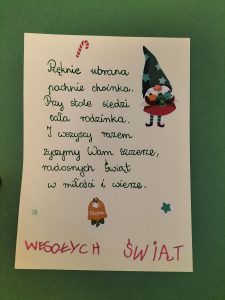 Pięknie ubrana
pachnie choinka.
Przy stole siedzi
cała rodzinka.
I wszyscy razem
życzymy Wam szczerze,
radosnych Świąt
w miłości i wierze.
WESOŁYCH ŚWIĄT